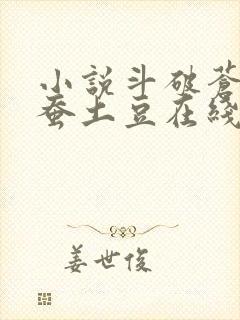 小説斗破蒼
蚕土豆在綫
姜世俊